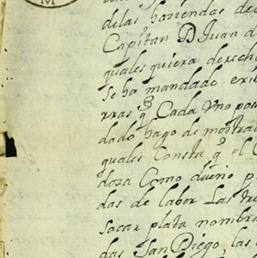 delas haziendas de
Capitan D Juan d
quales quiera derecho
Se ha mandado exi
rras q̃ Cada Vno pos
dado hago de mostra
quales Consta q̃ el C
doza Como dueño p
das de labor Las tie
sacar plata nombra
das San Diego, las